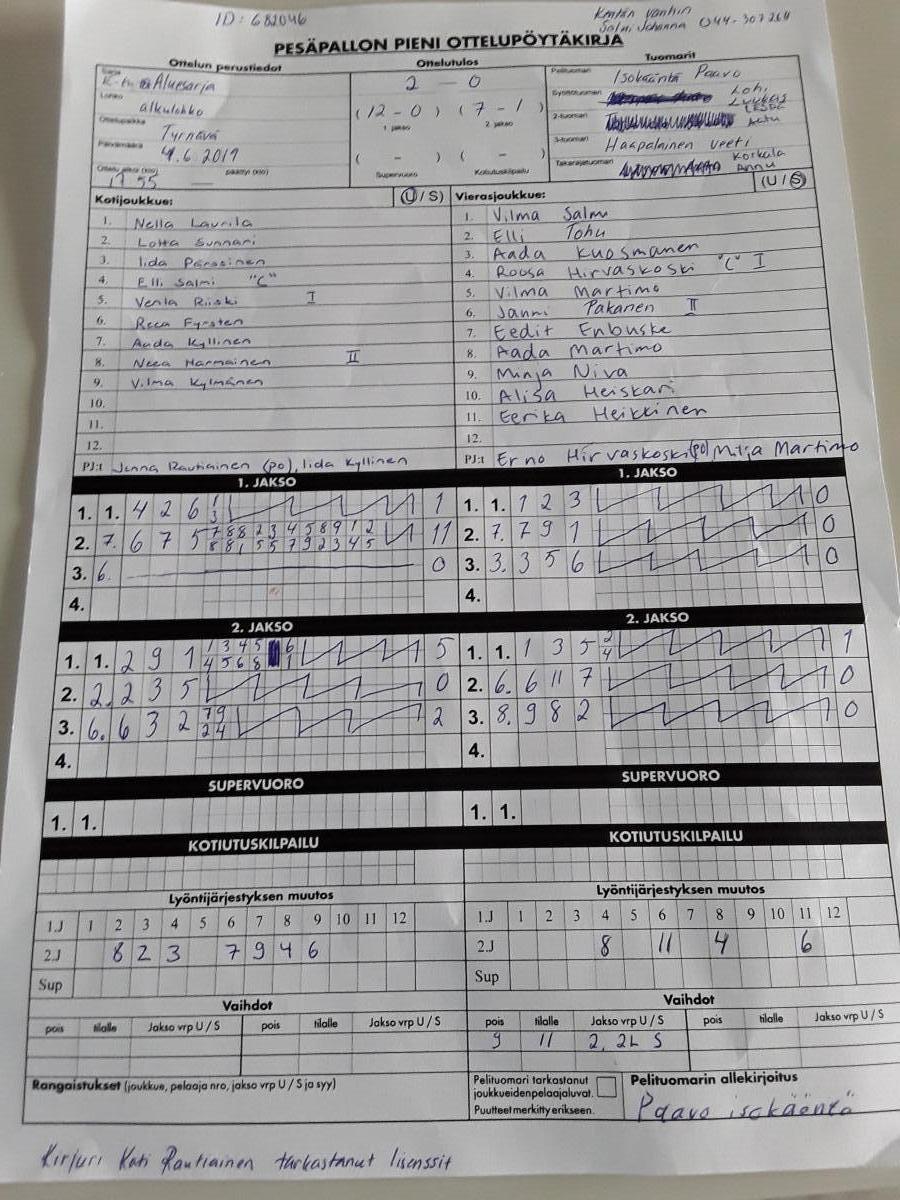 ID: 682046
Kentän vanhin
Salmi Johanna 044-307264
PESÄPALLON PIENI OTTELUPÖYTÄKIRJA
Ottelun perustiedot Ottelutulos Tuomarit
Sarja Aluesarja
Lohko alkulohko
Ottelupaikka Tyrnävä
Päivämäärä 4.6.2019
Ottelu alkoi (klo) 17 55 — päättyi (klo)
2 - 0
(12 - 0) (7 - 1)
1. jakso 2. jakso
( - ) ( - )
Supervuoro Kotiutuskilpailu
Pelituomari Isokääntä Paavo
Syöttötuomari
2-tuomari
3-tuomari Haapalainen Veeti
Takarajatuomari Korkala Annu
Kotijoukkue: (U / S)
1. Nella Laurila
2. Lotta Sunnari
3. Iida Pärssinen
4. Elli Salmi "C"
5. Venla Riiski I
6. Reea Fyrsten
7. Aada Kyllinen
8. Neea Harmainen II
9. Vilma Kylmänen
10.
11.
12.
PJ:t Jenna Rautiainen (po), Iida Kyllinen
Vierasjoukkue: (U / S)
1. Vilma Salmi
2. Elli Tohu
3. Aada Kuosmanen
4. Roosa Hirvaskoski "C" I
5. Vilma Martimo
6. Janni Pakanen II
7. Eedit Enbuske
8. Aada Martimo
9. Minja Niva
10. Alisa Heiskari
11. Eerika Heikkinen
12.
PJ:t Erno Hirvaskoski (po) Milja Martimo
1. JAKSO
1. 1. 4 2 6 1 3 1
2. 7. 6 7 5 7 8 8 2 3 4 5 8 9 1 2 11
8 8 1 5 5 7 9 2 3 4 5
3. 6. 0
4.
1. JAKSO
1. 1. 1 2 3 0
2. 7. 7 9 1 0
3. 3. 3 5 6 0
4.
2. JAKSO
1. 1. 2 9 1 1 3 4 5 6 5
4 5 6 8 1
2. 2. 2 3 5 0
3. 6. 6 3 2 7 9 2
2 4
4.
2. JAKSO
1. 1. 1 3 5 2 4 1
2. 6. 6 11 7 0
3. 8. 9 8 2 0
4.
SUPERVUORO
1. 1.
SUPERVUORO
1. 1.
KOTIUTUSKILPAILU
KOTIUTUSKILPAILU
Lyöntijärjestyksen muutos
1.J 1 2 3 4 5 6 7 8 9 10 11 12
2.J 8 2 3 7 9 4 6
Sup
Lyöntijärjestyksen muutos
1.J 1 2 3 4 5 6 7 8 9 10 11 12
2.J 8 11 4 6
Sup
Vaihdot
pois tilalle Jakso vrp U / S pois tilalle Jakso vrp U / S
Vaihdot
pois tilalle Jakso vrp U / S pois tilalle Jakso vrp U / S
9 11 2. 2L S
Rangaistukset (joukkue, pelaaja nro, jakso vrp U / S ja syy)
Pelituomari tarkastanut
joukkueidenpelaajaluvat.
Puutteet merkitty erikseen.
Pelituomarin allekirjoitus
Paavo isokääntä
Kirjuri Kati Rautiainen tarkastanut lisenssit